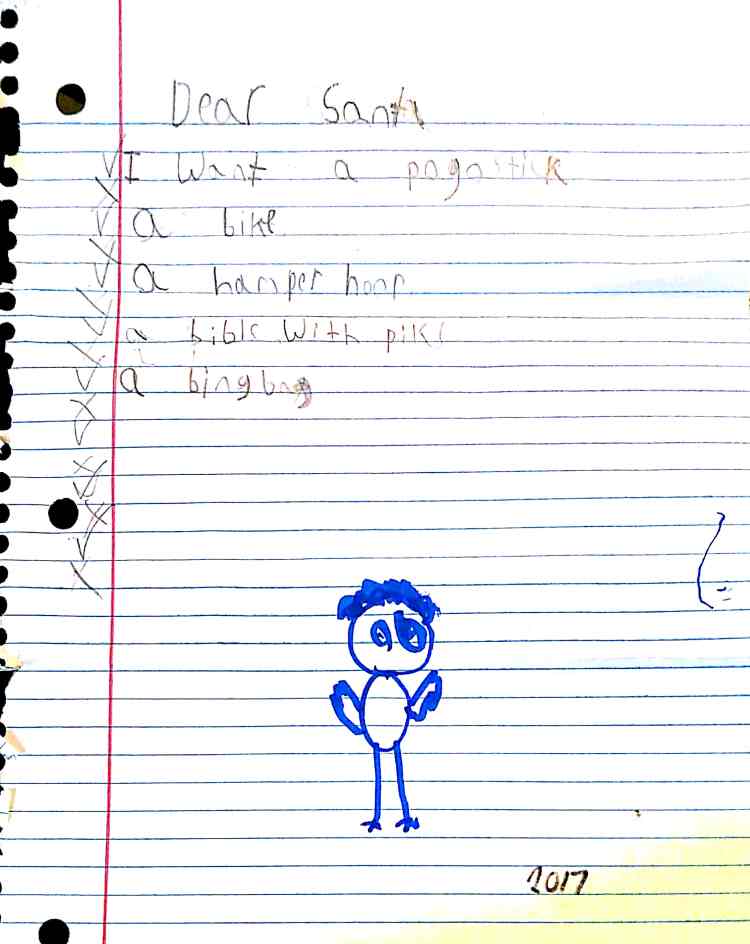 Dear Santa
I want a pogostick
a bike
a hamper hoop
a bible with piki
a bingbag
2017